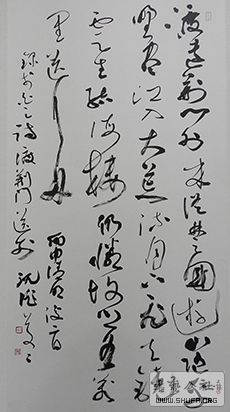 渡远荆门外来从楚国游山随
平野尽江入大荒流月下飞天镜
云生结海楼仍怜故水万
里送行舟
录李白诗渡荆门送别
丙申清明
书艺公社
WWW.SHUFA.ORG